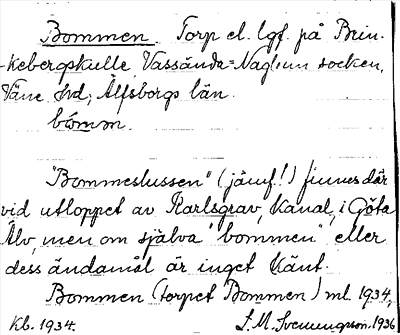 Bommen. Torp el. lgf. på Brin-
kebergskulle, Vassända=Naglum socken,
Väne hd, Älfsborgs län.
bòmm.
"Bommeslussen" (jämf!) finnes där
vid utloppet av Karlsgrav, Kanal, i Göta
Älv, men om själva "bommen" eller
dess ändamål är inget känt.
Bommen (torpet Bommen) ml. 1934,
Kb. 1934. S. M. Svenungson. 1936